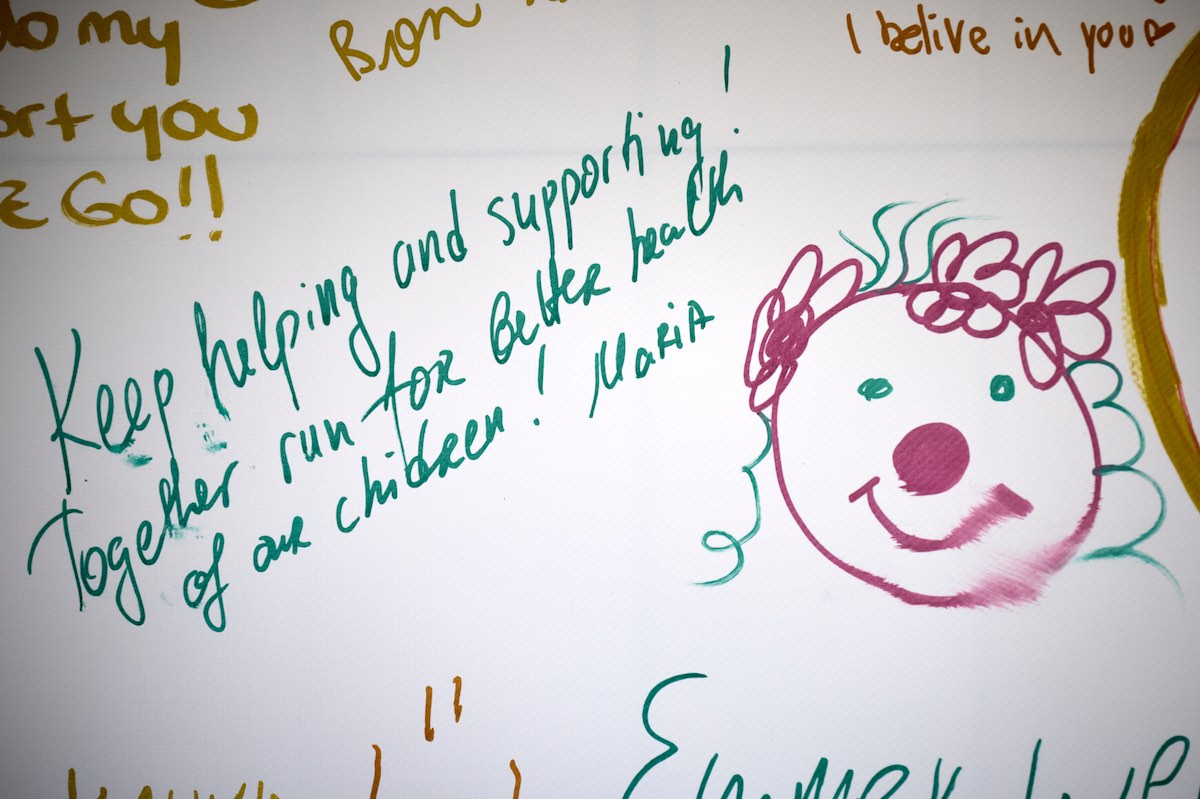 do my
ort you
& Go!!
Bron
I belive in you
Keep helping and supporting!
Together run for better health
of our children! Maria